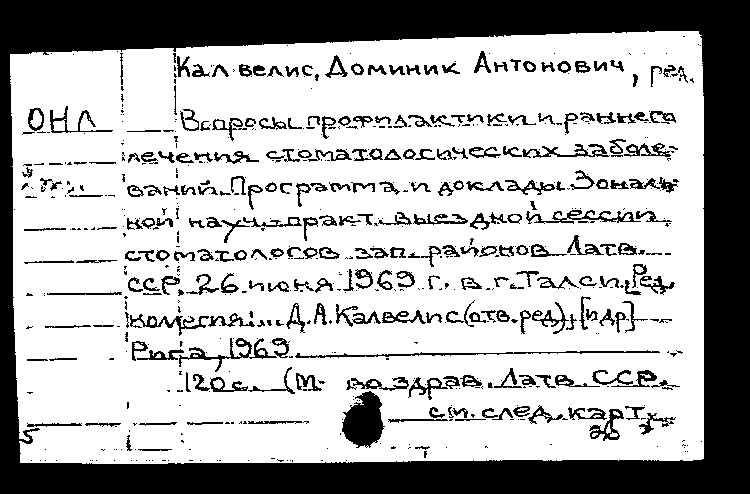 Калвелис, Доминик Антонович, ред.
ОНЛ Вопросы профилактики и раннего
лечения стоматологических заболе-
ваний. Программа и доклады Зональ-
ной науч.-практ. выездной сессии
стоматологов зап. районов Латв.
ССР. 26 июня 1969 г. в г. Талси. Ред.
комесия: ... Д. А. Калвелис (отв. ред), [и др]
Рига, 1969.
120 с. (М-во здрав. Латв. ССР.
см. след. карт.